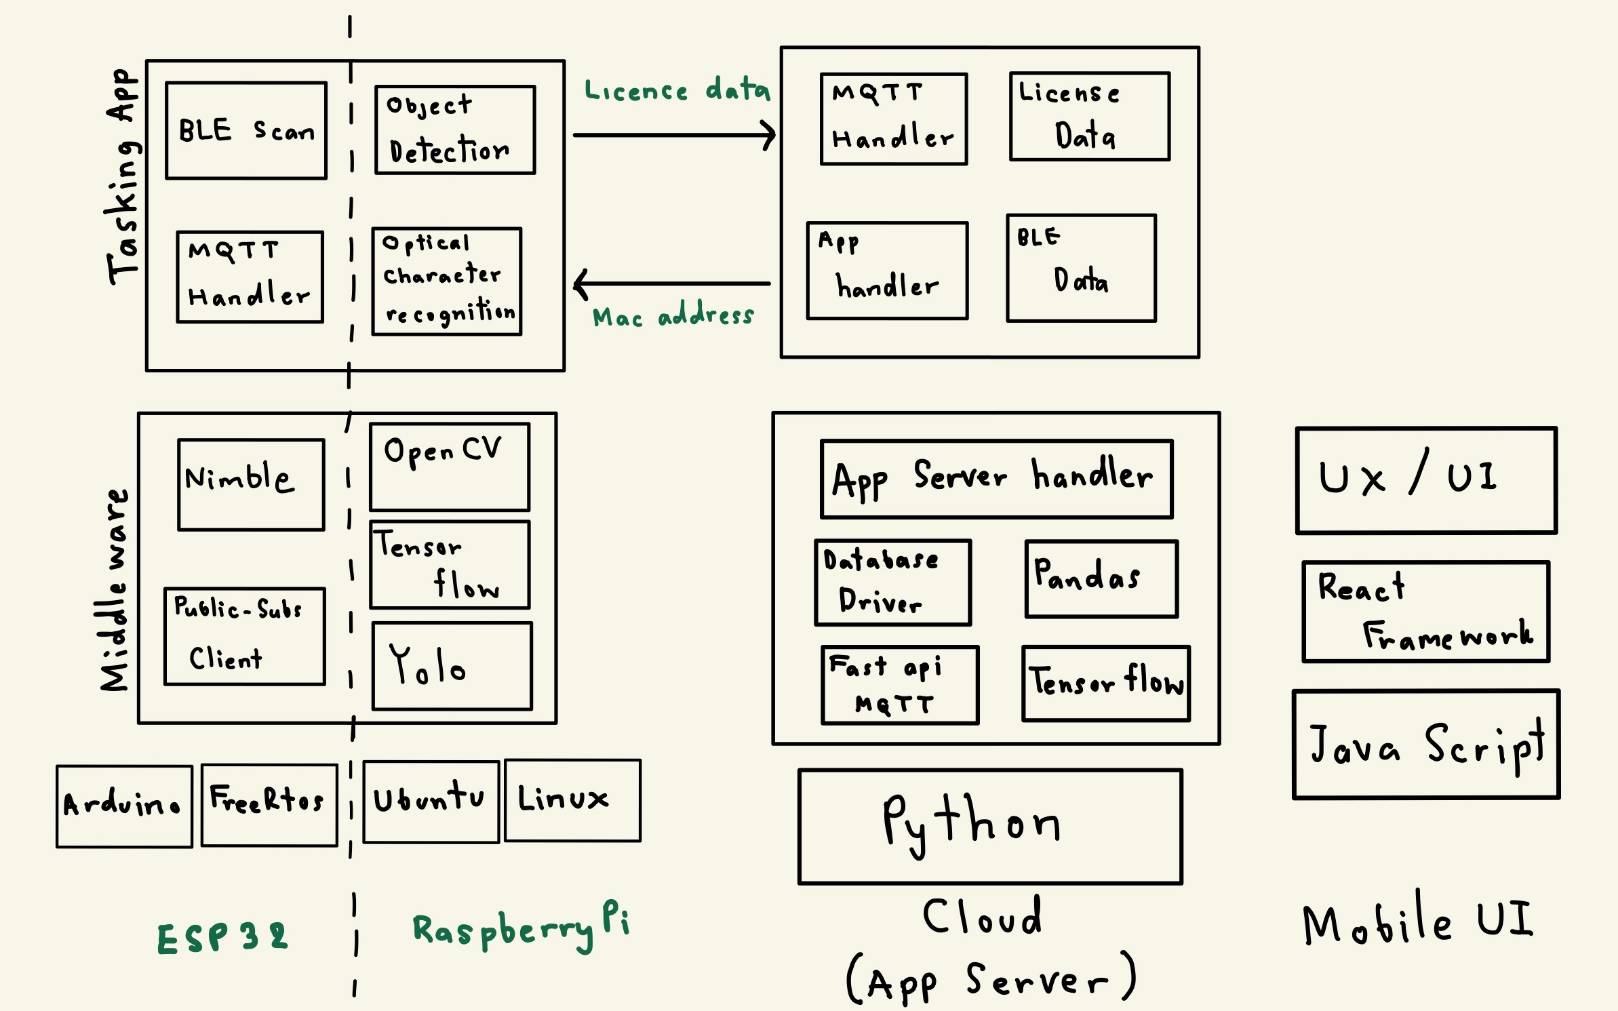 Tasking App
BLE Scan
Object
Detection
MQTT
Handler
Optical
character
recognition
Licence data
Mac address
MQTT
Handler
License
Data
App
handler
BLE
Data
Middleware
Nimble
Open CV
Tensor
flow
Public-Subs
Client
Yolo
App Server handler
Database
Driver
Pandas
Fast api
MQTT
Tensor flow
Ux / UI
React
Framework
Java Script
Arduino
FreeRtos
Ubuntu
Linux
Python
ESP32
Raspberry Pi
Cloud
(App Server)
Mobile UI